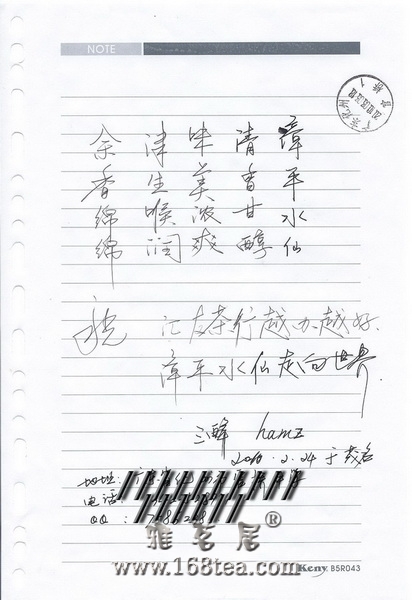 NOTE
漳平水仙
清香甘醇
味美浓爽
津生喉润
余香绵绵
祝 汇友茶行越办越好
漳平水仙走向世界
三峰 hamz
2010.2.24于茂名
地址:
电话:
QQ:
雅茗居®
www.168tea.com
Keny B5R043